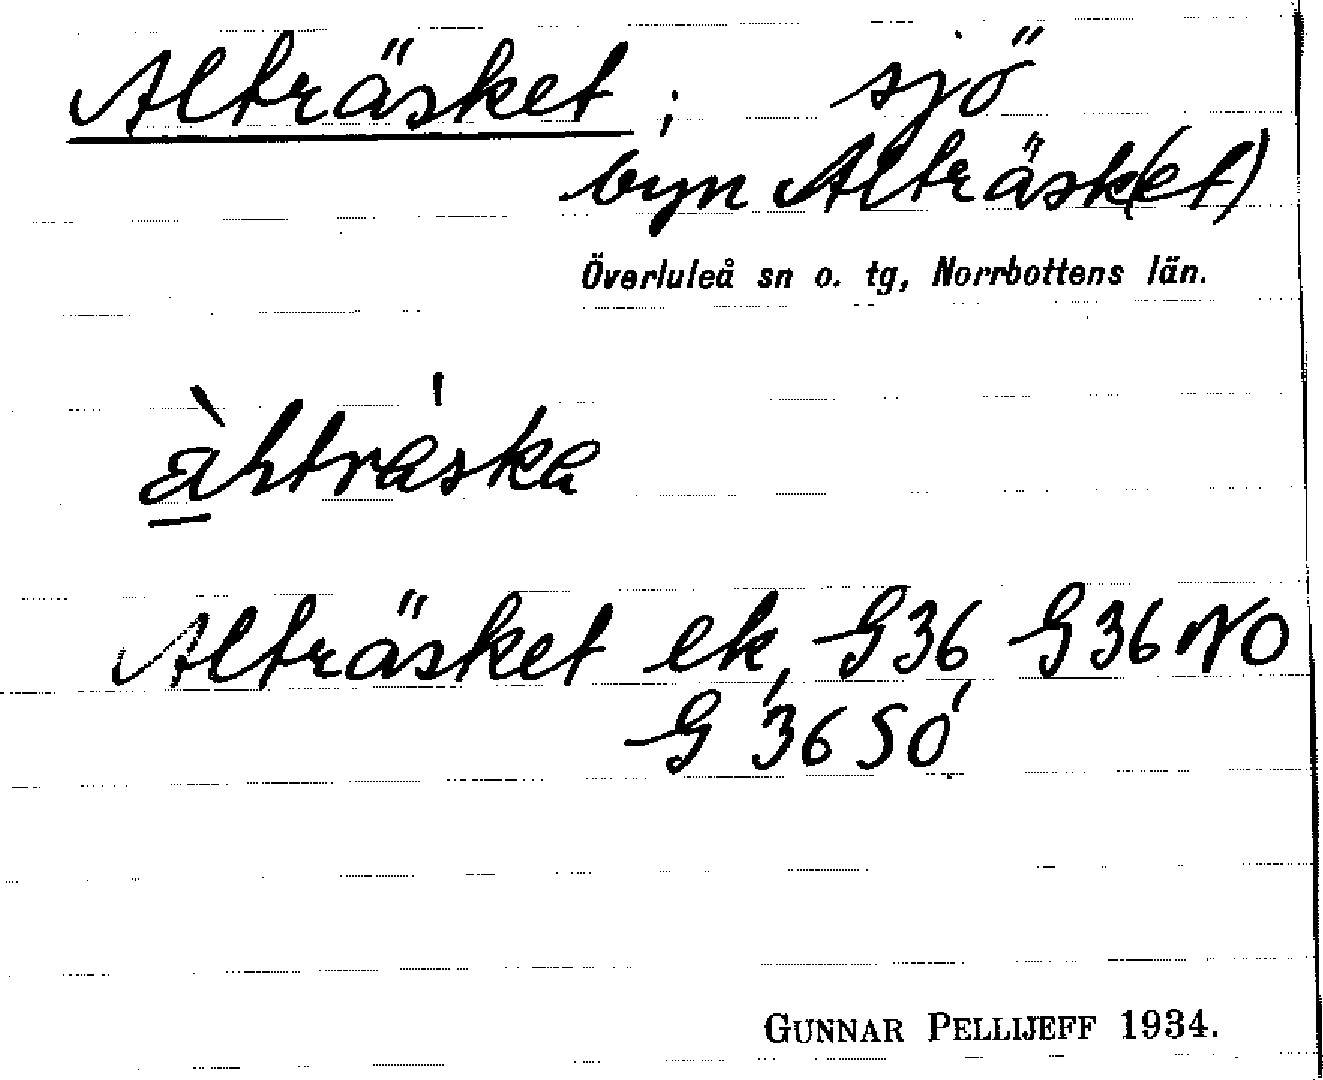 Alträsket; sjö
byn Alträsk(et)
Överluleå sn o. tg, Norrbottens län.
Alträsket ek, G36 G36NO
G 36 SO
GUNNAR PELLIJEFF 1934.